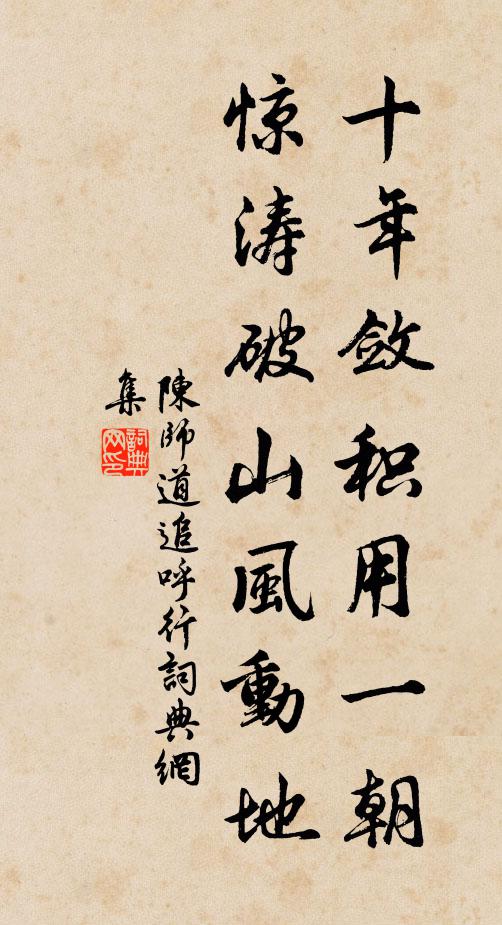 十年敛积用一朝
惊涛破山風動地
陳師道追呼行詞典網
集
詞典
网印